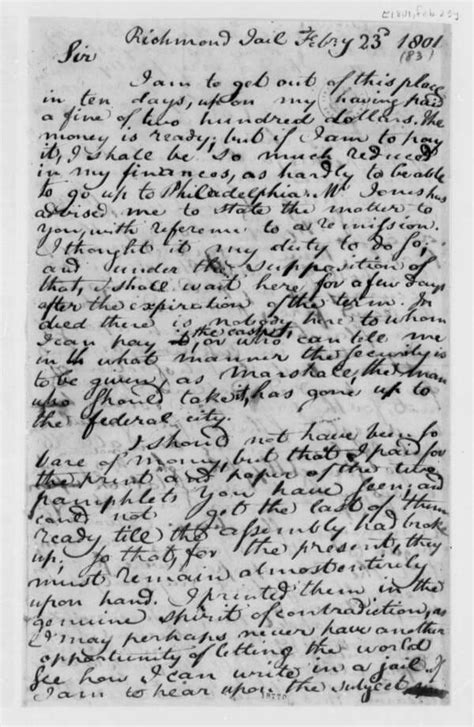 E1801, Feb 23
Richmond Jail Feb.ry 23.d 1801
(83)
Sir
I am to get out of this place
in ten days, upon my having paid
a fine of two hundred dollars. The
money is ready; but if I am to pay
it, I shall be so much reduced
in my finances, as hardly to be able
to go up to Philadelphia. Mr Jones has
advised me to state the matter to
you, with reference to a remission.
I thought it my duty to do so;
and under the supposition of
that, I shall wait here for a few days
after the expiration of the term. In
deed there is nobody here to whom
I can pay the cash, or who can tell me
in what manner the security is
to be given, as Marshall, the man
who should take it, has gone up to
the federal city.
I should not have been so
bare of money, but that I paid for
the print and paper of the two
pamphlets you have seen; and
could not get the last of them
ready till the assembly had broke
up, so that, for the present, they
must remain almost entirely
upon hand. I printed them in the
genuine spirit of contradiction, as
I may perhaps never have another
opportunity of letting the world
see how I can write in a jail. If
I am to hear upon the subject